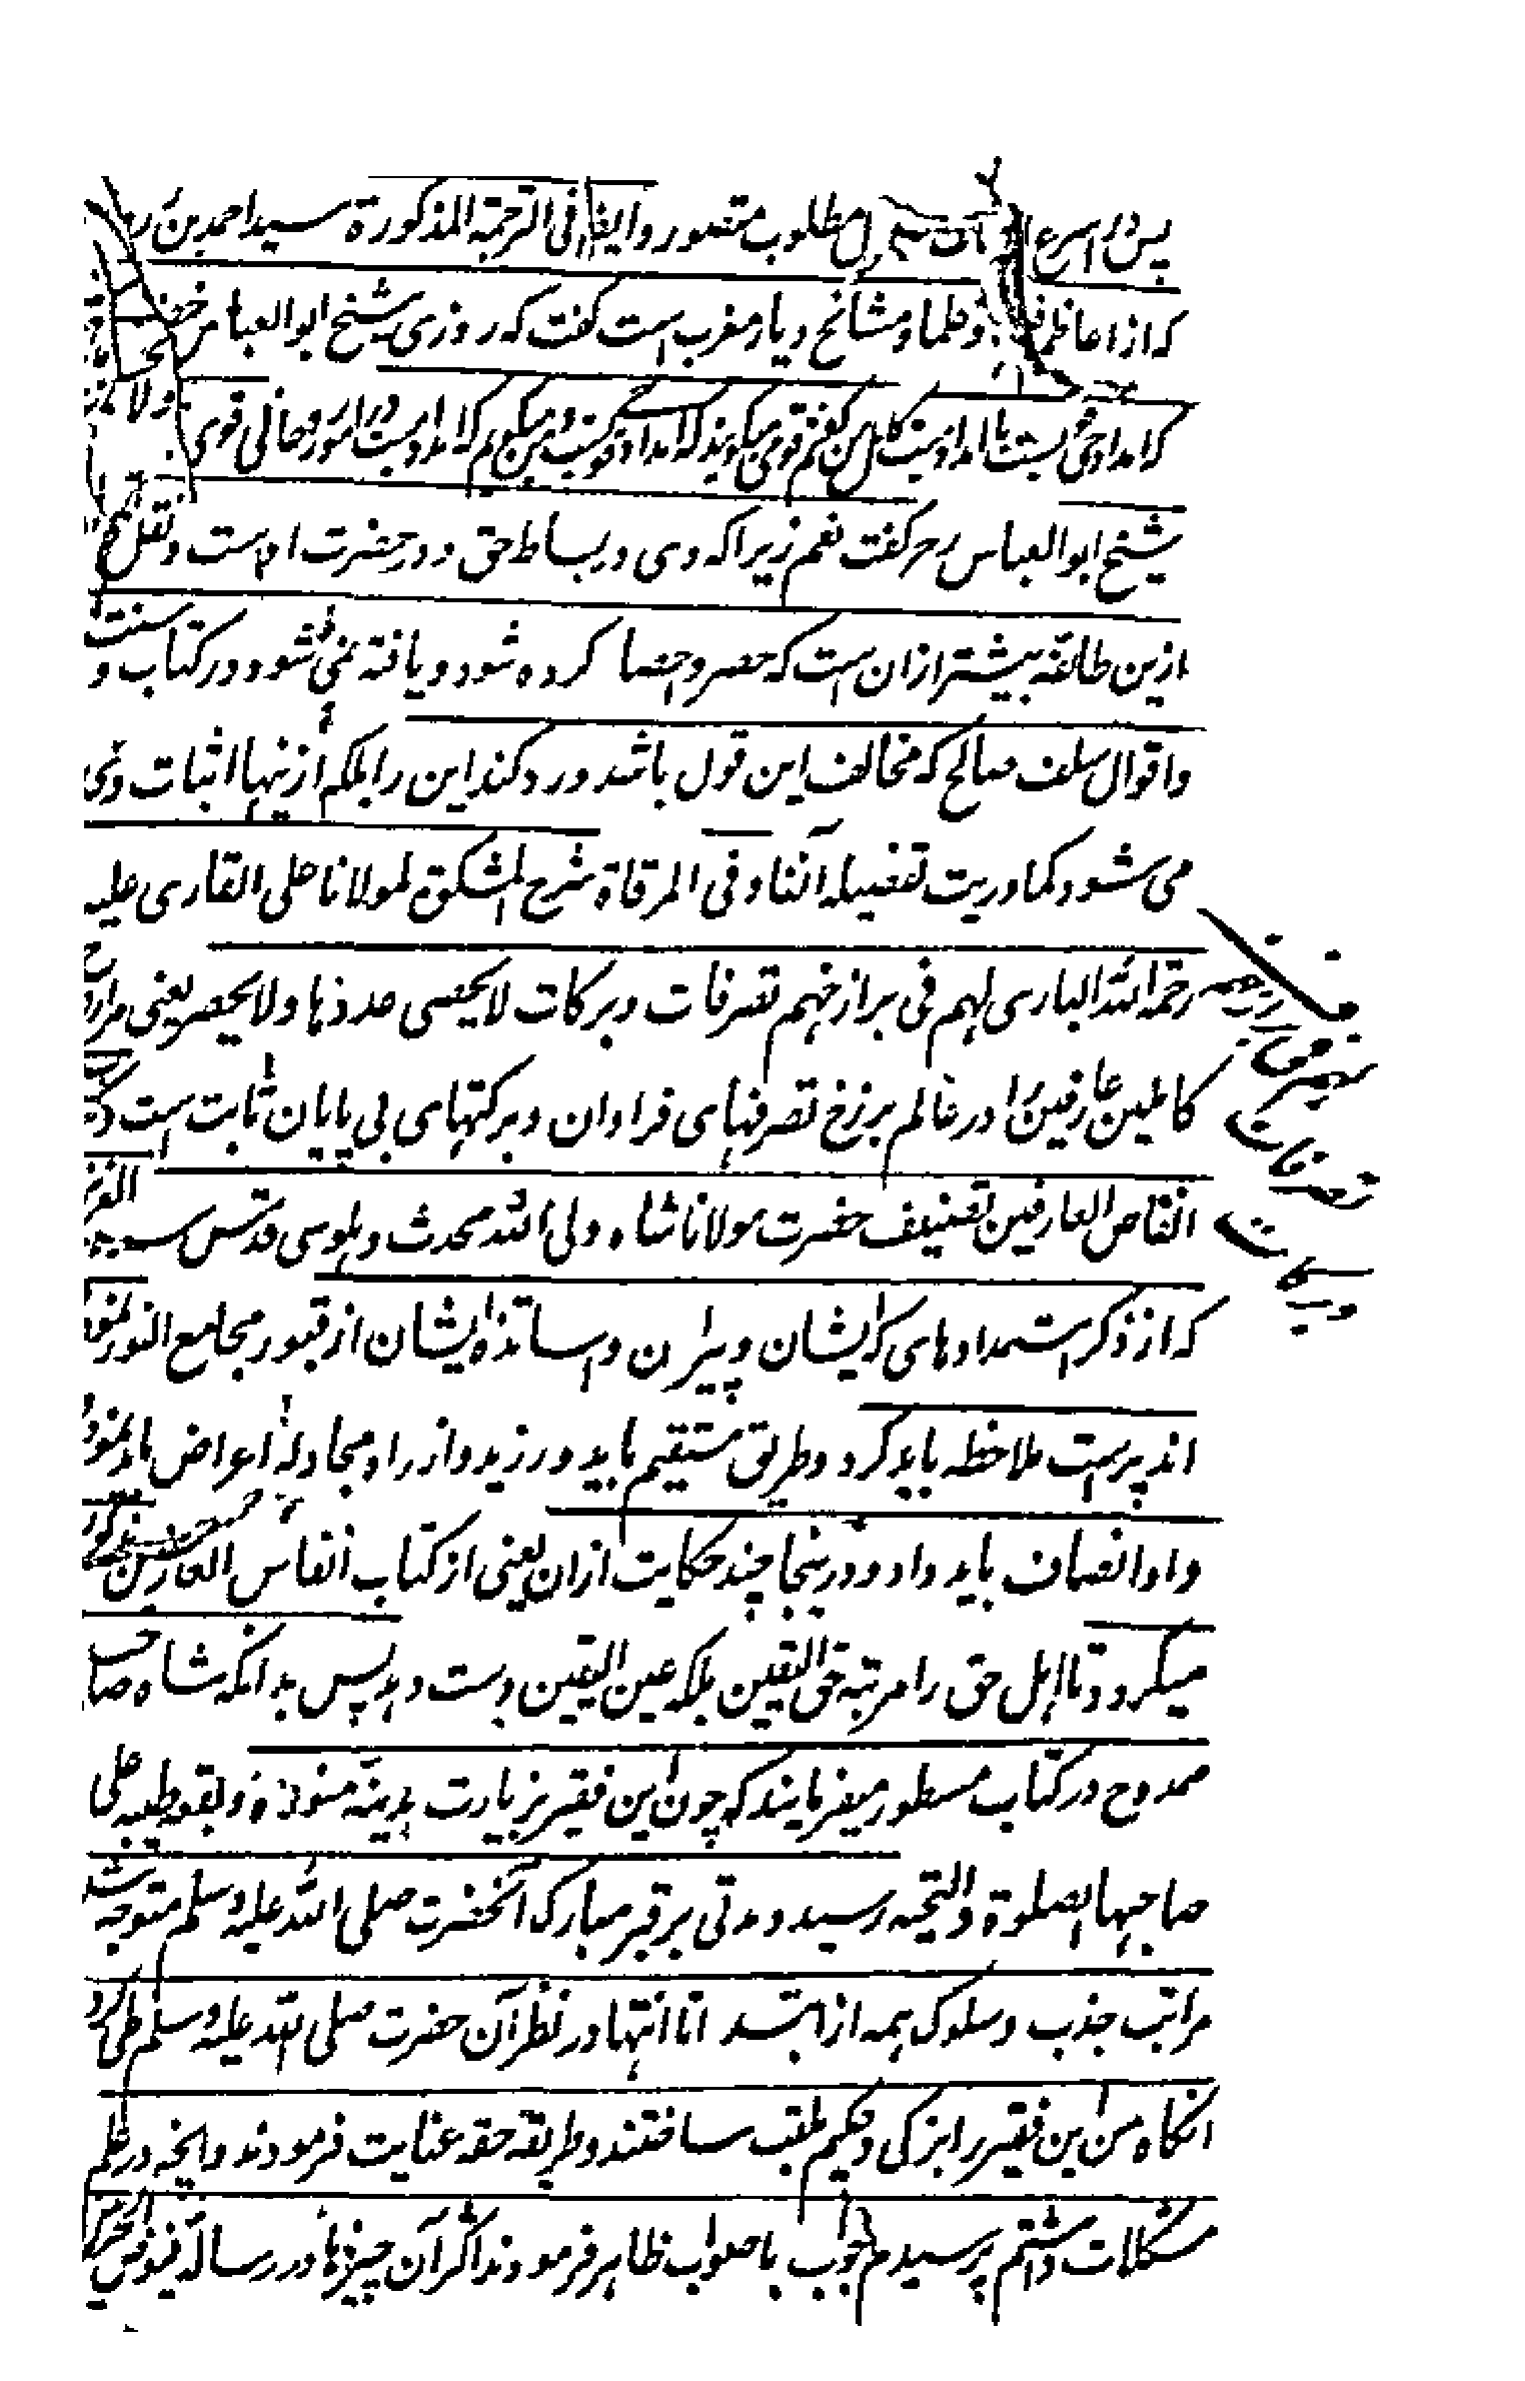 پس در اسرع مطلوب متصور و ایضا فی الترجمة المذکورة سید احمد بن
که از اعاظم و علما و مشائخ دیار مغرب است گفت که روزی شیخ ابو العباس
که امداد حی است یا امداد میت من گفتم قومی میگویند که امداد حی قوی ست و من میگویم که امداد میت قوی
شیخ ابو العباس گفت نعم زیرا که وی در بساط حق و در حضرت اوست و نقل
ازین طائفه بیشتر ازان است که حصر و احصا کرده شود و یافته نمی شود در کتاب و سنت
و اقوال سلف صالح که مخالف این قول باشد و رد کند این را بلکه ازینها اثبات وی
می شود کما دریت تفصیله آنفا و فی المرقاة شرح المشکوة لمولانا علی القاری علیه
رحمة الله الباری لهم فی برازخهم تصرفات و برکات لا یحصی عددها و لا یحصر یعنی
کاملین عارفین را در عالم برزخ تصرفهای فراوان و برکتهای بی پایان ثابت است
انفاس العارفین تصنیف حضرت مولانا شاه ولی الله محدث دهلوی قدس سره
که از ذکر استمدادهای که ایشان و پیران و اساتذه ایشان از قبور مجامع النور
اند پرست ملاحظه باید کرد و طریق مستقیم باید ورزید و از راه مجادله اعراض باید نمود
و داد انصاف باید داد و درینجا چند حکایت ازان یعنی از کتاب انفاس العارفین
میگردد تا اهل حق را مرتبه حق الیقین بلکه عین الیقین دست دهد پس بدانکه شاه صاحب
ممدوح در کتاب مسطور میفرمایند که چون این فقیر بزیارت مدینه منوره و بقعه طیبه علی
صاحبها الصلوة والتحیة رسید و مدتی بر قبر مبارک آنحضرت صلی الله علیه وسلم متوجه
مراتب جذب و سلوک همه از ابتدا تا انتها در نظر آن حضرت صلی الله علیه وسلم طی کرد
انگاه من این فقیر را بزکی و حکیم ملقب ساختند و طریقه حقه عنایت فرمودند و آنچه در علم
مشکلات داشتم پرسیدم جواب با صواب ظاهر فرمودند اکثر آن چیزها در رساله فیوض الحرمین
تصرفات
و برکات